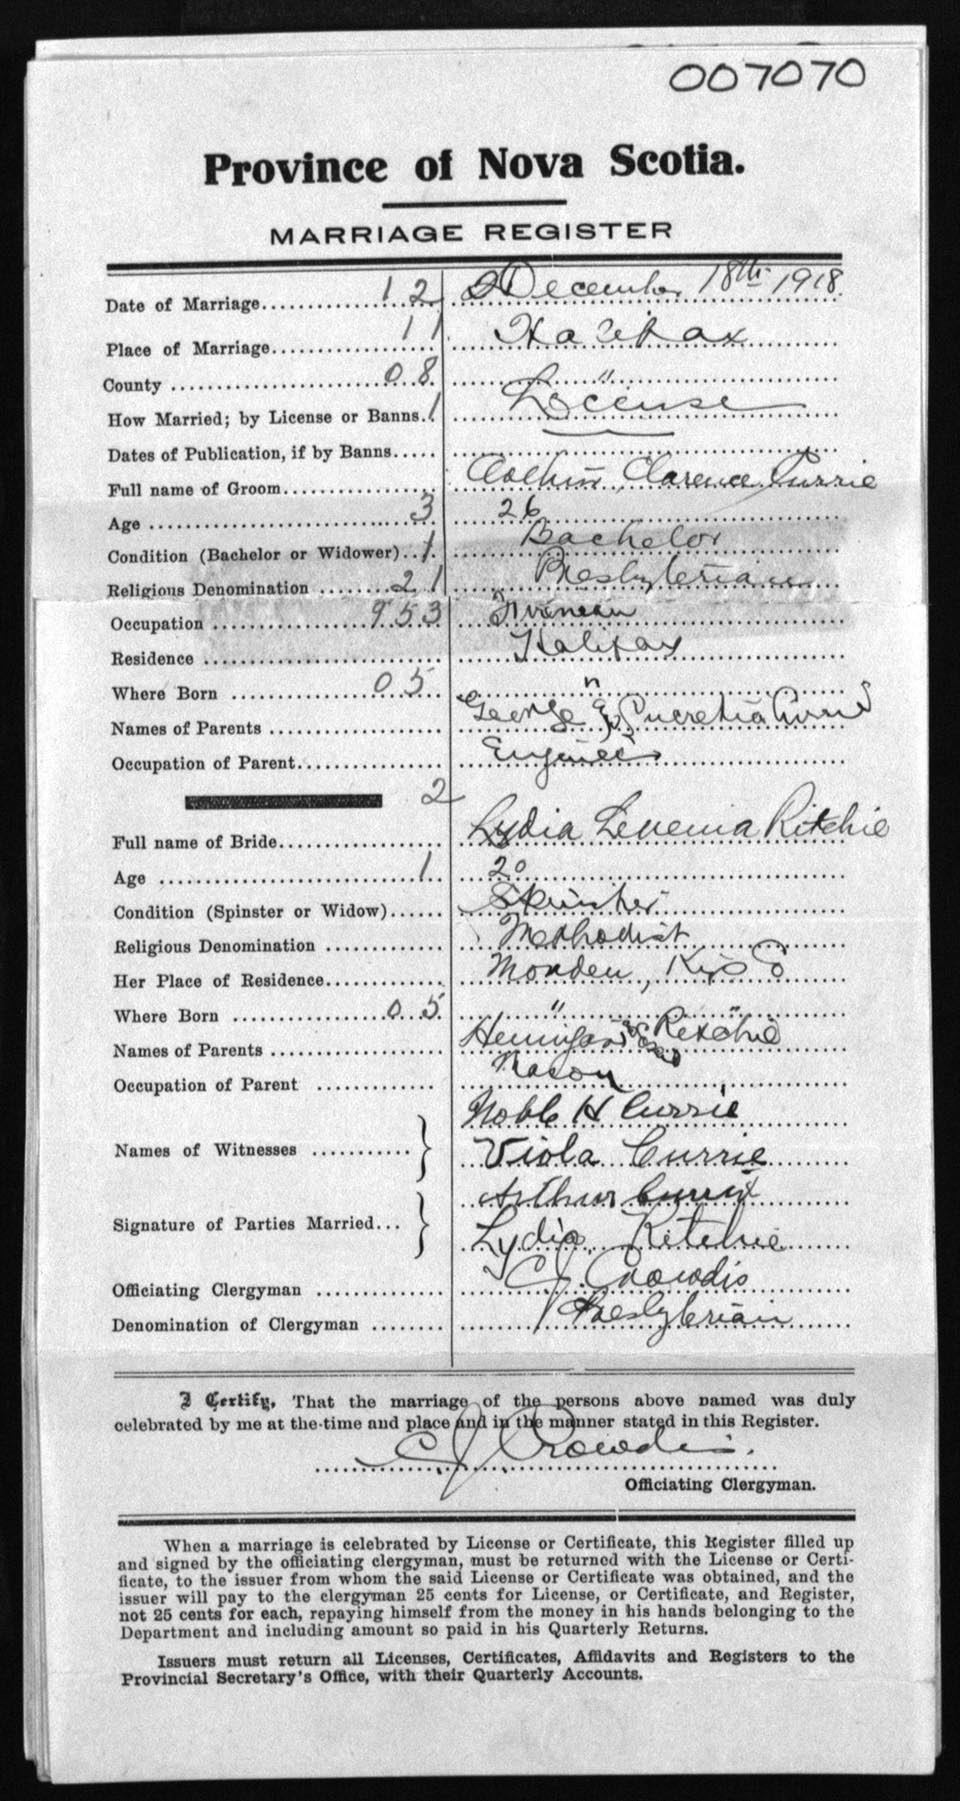 007070
Province of Nova Scotia.
MARRIAGE REGISTER
Date of Marriage 12 December 18th 1918
Place of Marriage 11 Halifax
County 08 "
How Married; by License or Banns 1 License
Dates of Publication, if by Banns
Full name of Groom Clarence Currie
Age 3 26
Condition (Bachelor or Widower) 1 Bachelor
Religious Denomination 21 Presbyterian
Occupation 953
Residence Halifax
Where Born 05 "
Names of Parents George & Lucretia Currie
Occupation of Parent Engineer
2
Full name of Bride Lydia Levenia Ritchie
Age 1 20
Condition (Spinster or Widow) Spinster
Religious Denomination Methodist
Her Place of Residence Morden, Kgs Co
Where Born 05 " "
Names of Parents Ritchie
Occupation of Parent Mason
Noble H Currie
Names of Witnesses } Viola Currie
Arthur Currie
Signature of Parties Married } Lydia Ritchie
Officiating Clergyman C J Crowdis
Denomination of Clergyman Presbyterian
I Certify, That the marriage of the persons above named was duly
celebrated by me at the time and place and in the manner stated in this Register.
C J Crowdis.
Officiating Clergyman.
When a marriage is celebrated by License or Certificate, this Register filled up
and signed by the officiating clergyman, must be returned with the License or Certi-
ficate, to the issuer from whom the said License or Certificate was obtained, and the
issuer will pay to the clergyman 25 cents for License, or Certificate, and Register,
not 25 cents for each, repaying himself from the money in his hands belonging to the
Department and including amount so paid in his Quarterly Returns.
Issuers must return all Licenses, Certificates, Affidavits and Registers to the
Provincial Secretary's Office, with their Quarterly Accounts.